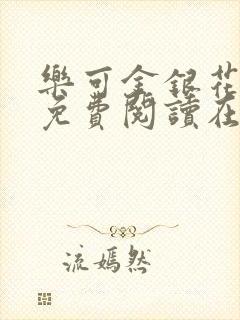 樂可金銀花
免費閱讀在
流嫣然